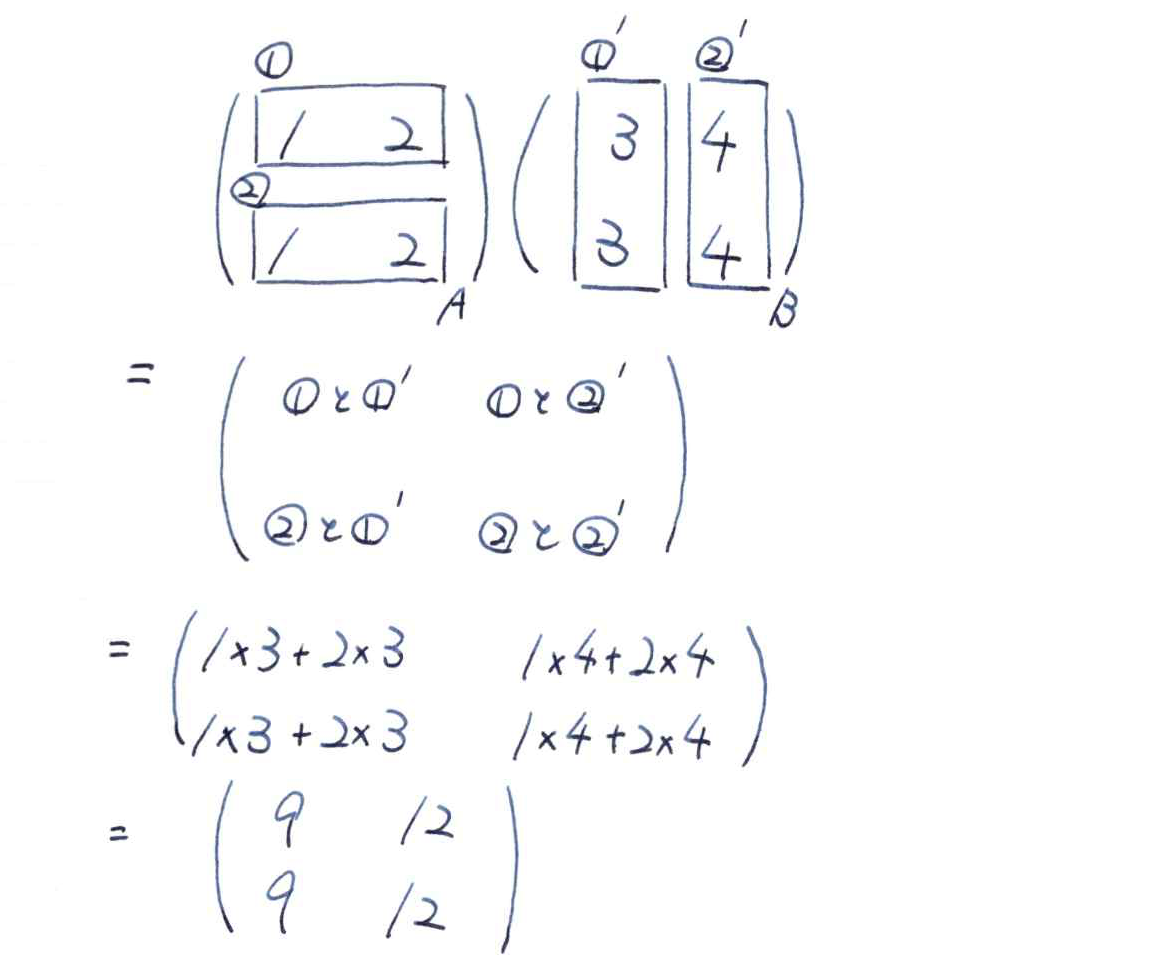 ① ①' ②'
( 1 2 ) ( 3 4 )
②
( 1 2 ) ( 3 4 )
A B
= ( ①と①' ①と②' )
( ②と①' ②と②' )
= ( 1×3+2×3 1×4+2×4 )
( 1×3+2×3 1×4+2×4 )
= ( 9 12 )
( 9 12 )